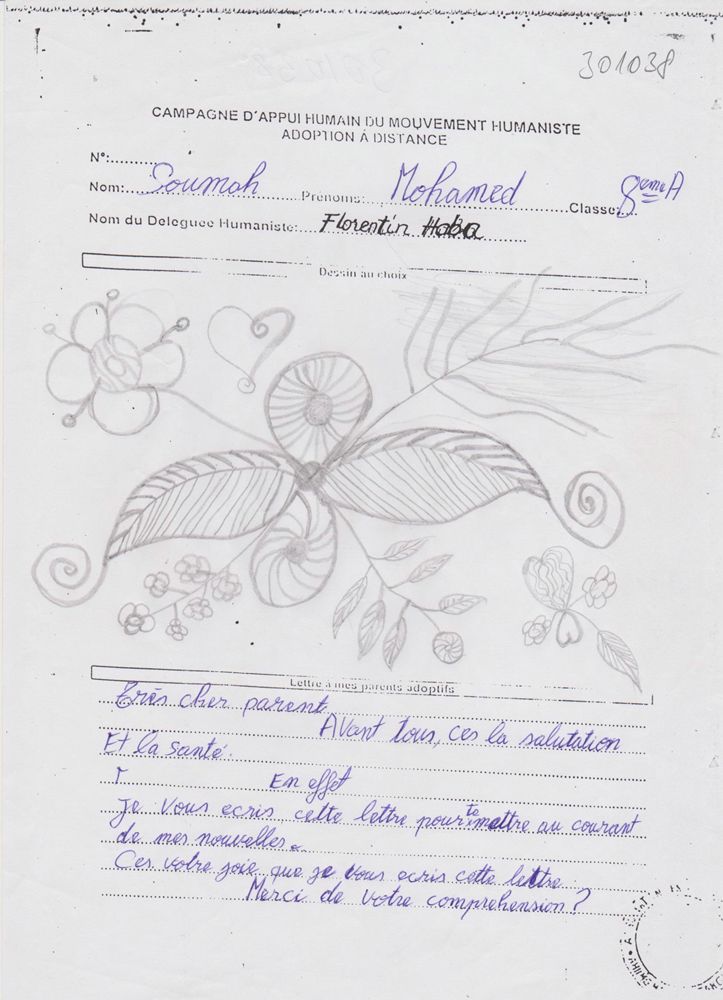 301038
CAMPAGNE D'APPUI HUMAIN DU MOUVEMENT HUMANISTE
ADOPTION À DISTANCE
N°:
Nom: Soumah Prénoms: Mohamed Classe: 8ème A
Nom du Deleguee Humaniste: Florentin Haba
Dessin au choix
Lettre à mes parents adoptifs
Très cher parent
Avant tous, ces la salutation
Et la santé.
En effet
Je vous ecris cette lettre pour te mettre au courant
de mes nouvelles.
Ces votre joie que je vous ecris cette lettre.
Merci de votre comprehension?